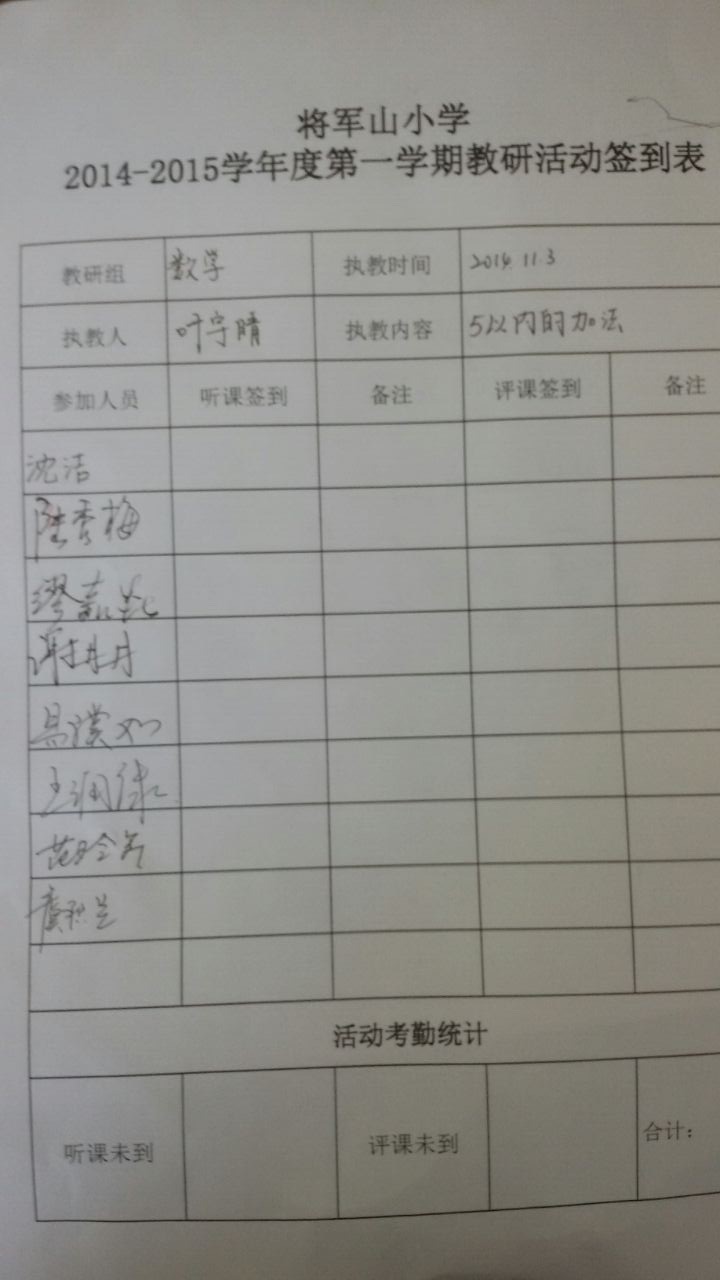 将军山小学
2014-2015学年度第一学期教研活动签到表
教研组 数学 执教时间 2014.11.3
执教人 叶宇晴 执教内容 5以内的加法
参加人员 听课签到 备注 评课签到 备注
沈洁
陆秀梅
缪嘉
谢丹丹
吴璞如
王润
虞积兰
活动考勤统计
听课未到 评课未到 合计：